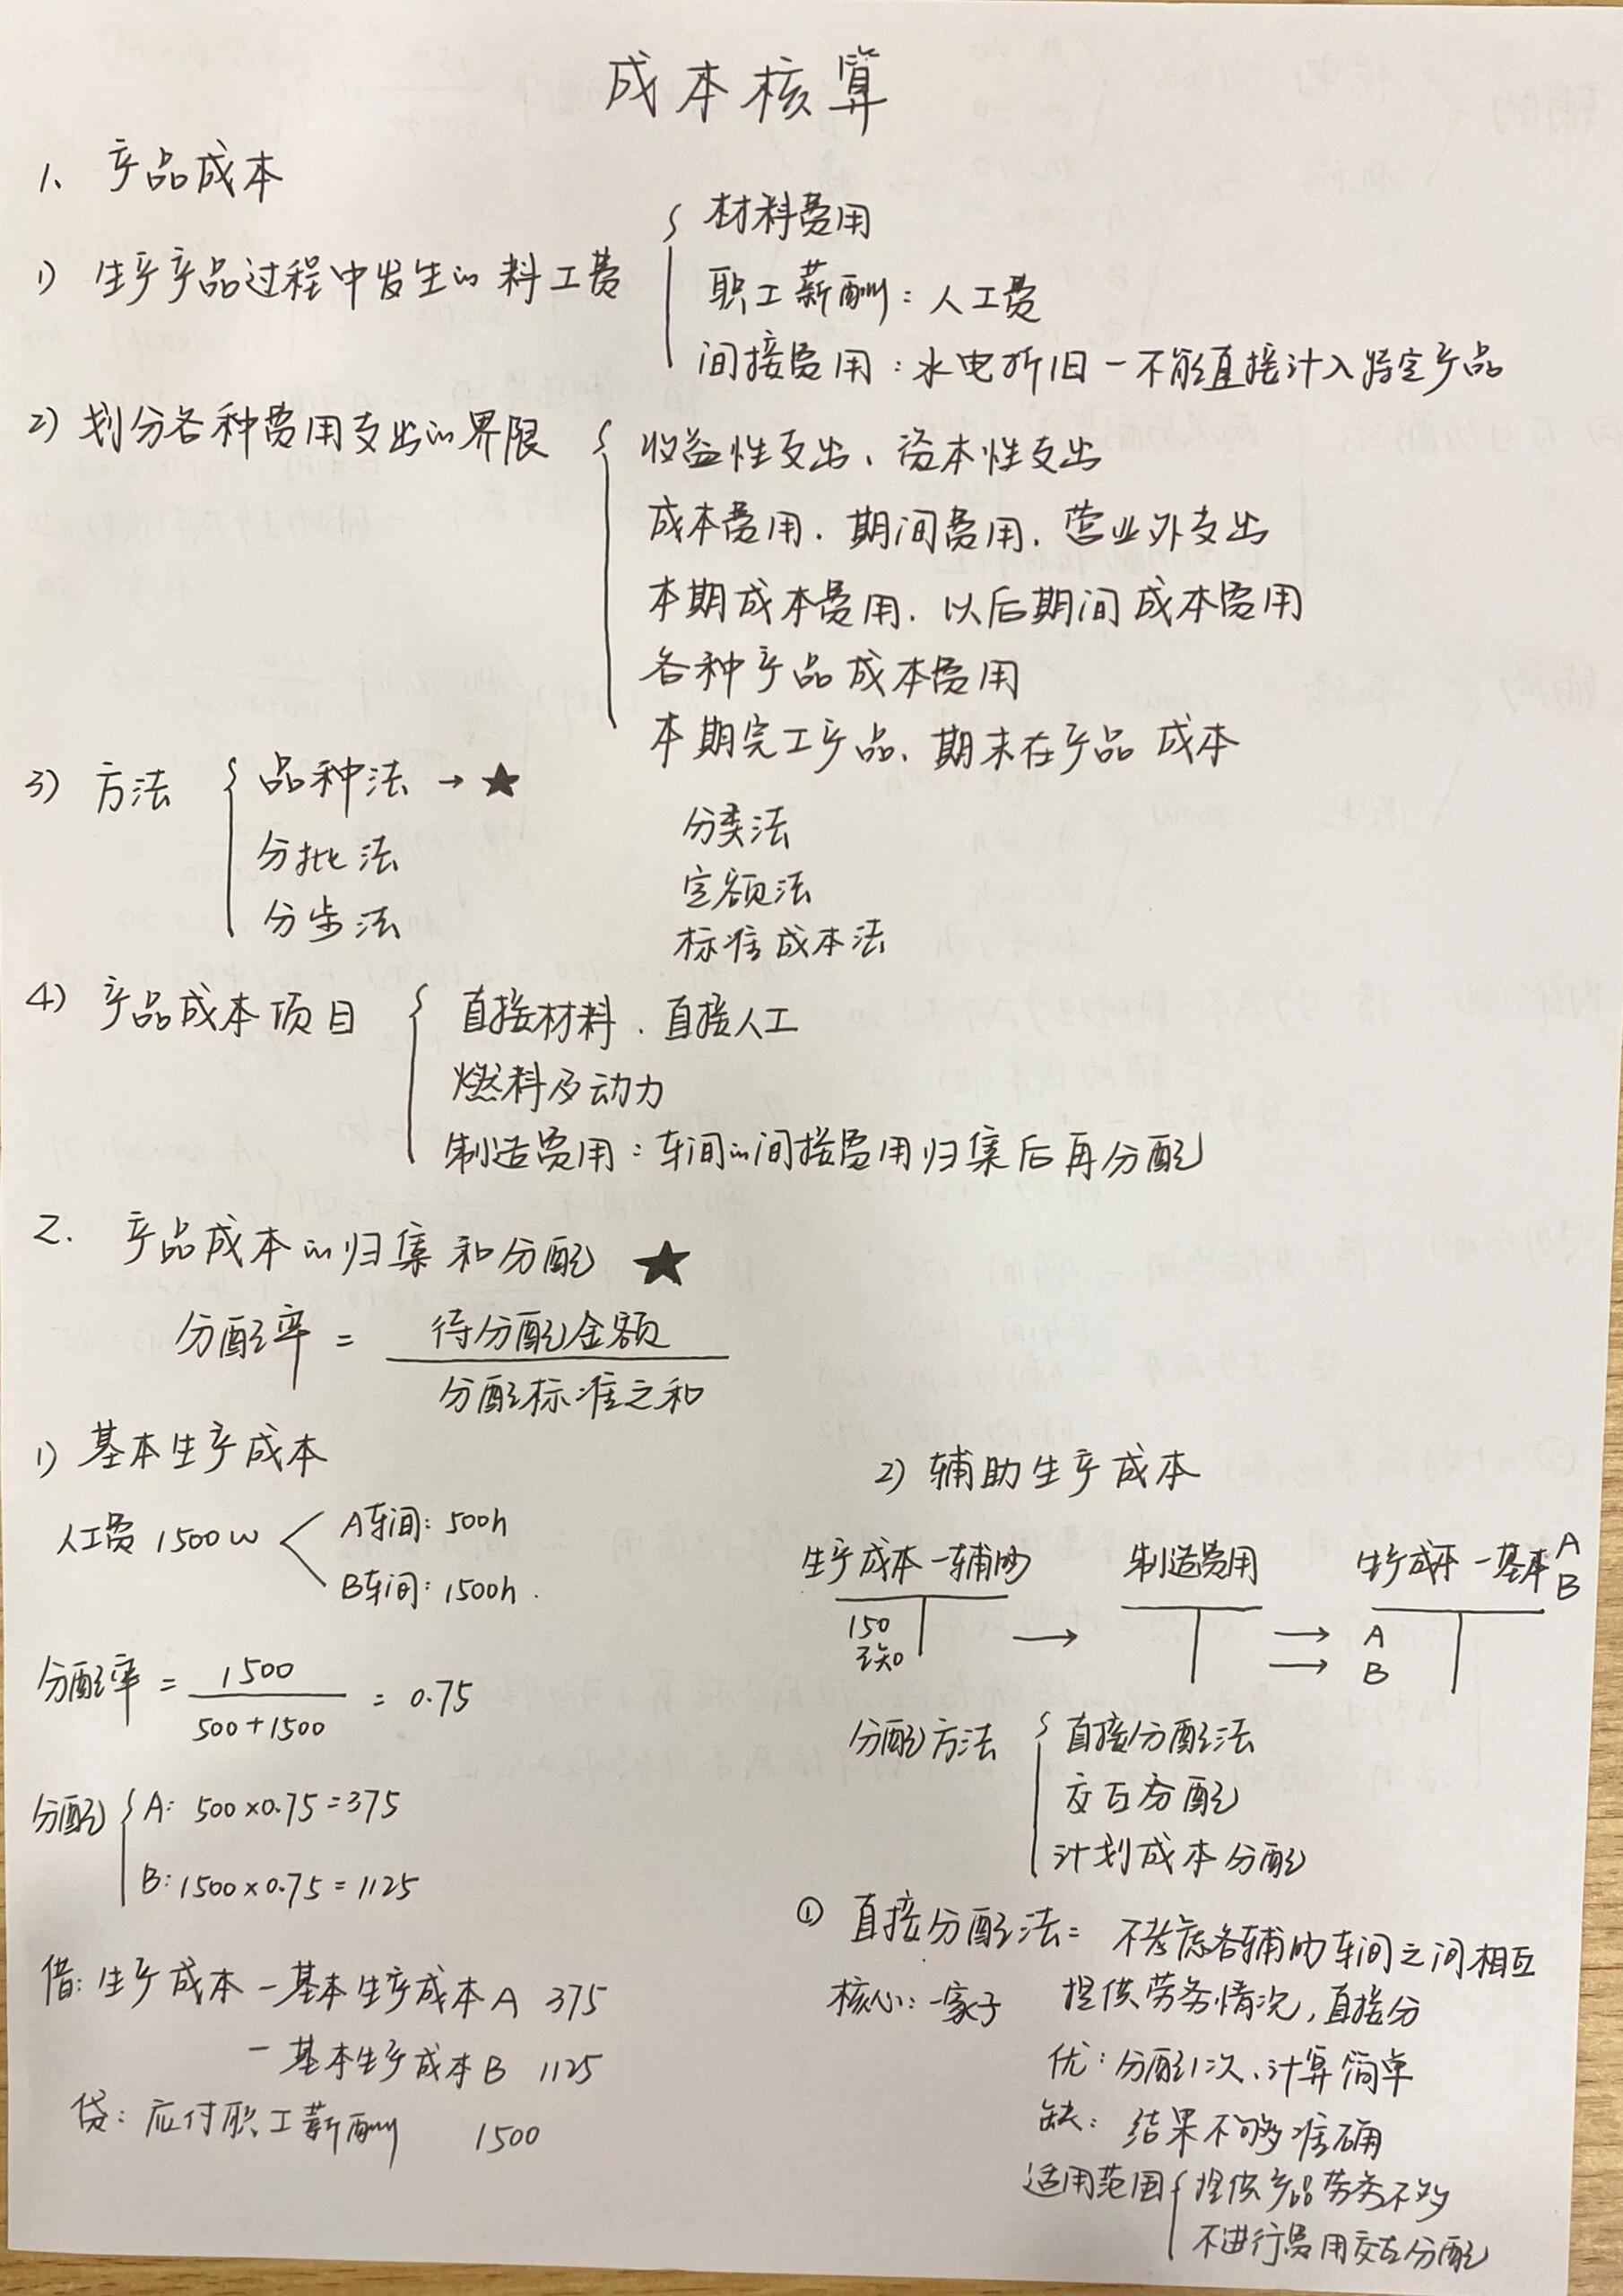 成本核算
1、产品成本
1) 生产产品过程中发生的料工费 { 材料费用
职工薪酬：人工费
间接费用：水电折旧－不能直接计入特定产品
2) 划分各种费用支出的界限 { 收益性支出、资本性支出
成本费用、期间费用、营业外支出
本期成本费用、以后期间成本费用
各种产品成本费用
本期完工产品、期末在产品成本
3) 方法 { 品种法 → ★
分批法
分步法
分类法
定额法
标准成本法
4) 产品成本项目 { 直接材料、直接人工
燃料及动力
制造费用：车间的间接费用归集后再分配
2. 产品成本的归集和分配 ★
分配率 = 待分配金额
分配标准之和
1) 基本生产成本
人工费 1500w < A车间：500h
B车间：1500h.
分配率 = 1500 / 500+1500 = 0.75
分配 { A: 500×0.75=375
B: 1500×0.75=1125
借：生产成本－基本生产成本A 375
－基本生产成本B 1125
贷：应付职工薪酬 1500
2) 辅助生产成本
生产成本－辅助 制造费用 生产成本－基本 A B
150 → → A
→ B
分配方法 { 直接分配法
交互分配
计划成本分配
① 直接分配法= 不考虑各辅助车间之间相互
核心：一家子 提供劳务情况，直接分
优：分配1次、计算简单
缺：结果不够准确
适用范围 { 提供产品劳务不多
不进行费用交互分配